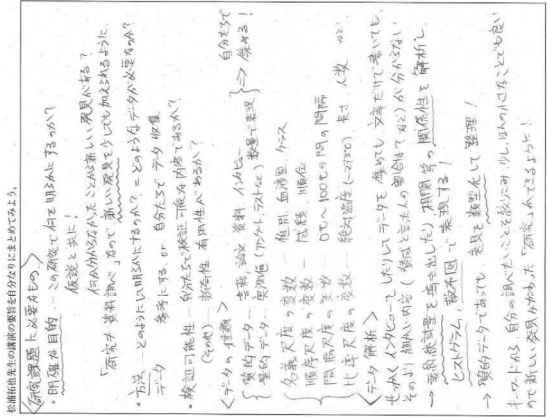 松浦拓也先生の講演の要旨を自分なりにまとめてみよう。
<研究課題に必要なもの>
・明確な目的 … この研究で何を明らかにするのか?
仮説と共に!
何が分からなかったことから新しい発見がある?
「研究≠資料調べ」なので 新しい発見を少しでも加えられるように
・方法 … どのようにして明らかにするか? = どのようなデータが必要なのか?
データ 参考にする or 自分たちで データ収集
・検証可能性 … 自分たちで検証可能な内容であるか?
(その他) … 新奇性 有用性 があるか?
<データの種類>
質的データ … 書籍 論文 資料 インタビュー
量的データ … 実測値 (アンケート、テストなど) 数量で表現
⇒ 自分たちで集める!
名義尺度の変数 … 性別 血液型 クラス
順序尺度の変数 … 成績 順位
間隔尺度の変数 … 0℃〜100℃の間の間隔
比率尺度の変数 … 絶対温度 (-273℃) 長さ 人数 など
<データ解析>
せっかくインタビューをしたりしてデータを集めても、文章だけで書いても
そのより細かい内容 (賛成と言った人の割合は? など) が分からない
→ 要約統計量を算出したり 相関等の関係性を解析し、
ヒストグラム、散布図で表現する!
→ 質的データであっても 意見を類型化して整理!
キーワードから 自分の調べたいことを絞りこみ 少し、ほんのわずかなことでも良い
ので新しい発見がある「研究」ができるように!